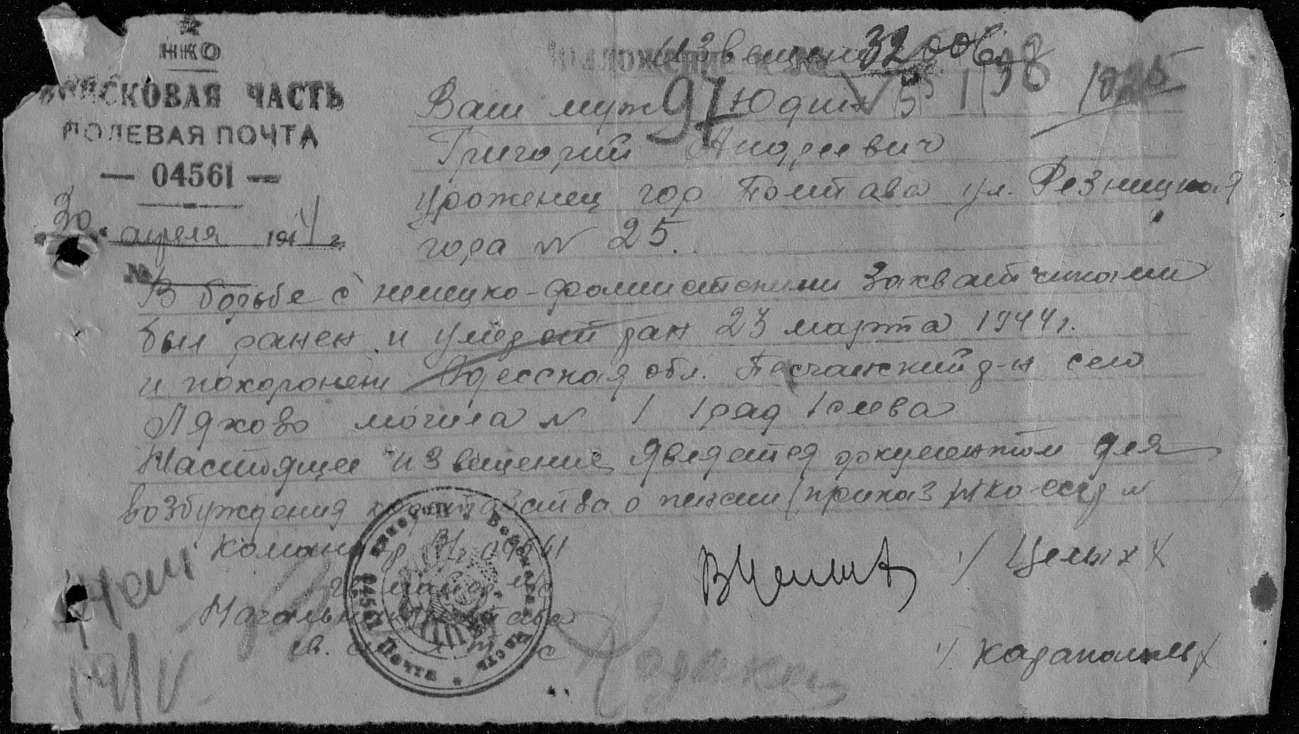 НКО
ВОЙСКОВАЯ ЧАСТЬ
ПОЛЕВАЯ ПОЧТА
— 04561 —
30 апреля 1944 г.
№
Извещение 32006
97
Ваш муж Юдин
Григорий Андреевич
уроженец гор Полтава ул. Резницкая
года № 25.
В борьбе с немецко-фашистскими захватчиками
был ранен и умер от ран 23 марта 1944 г.
и похоронен Одесская обл. Песчанский р-н село
Ляхово могила № 1 1 ряд 1 слева
Настоящее извещение является документом для
возбуждения ходатайства о пенсии (приказ НКО СССР №
Командир 04561
Целых
Начальник штаба
Полевая Почта 04561 Войсковая Часть
19/V